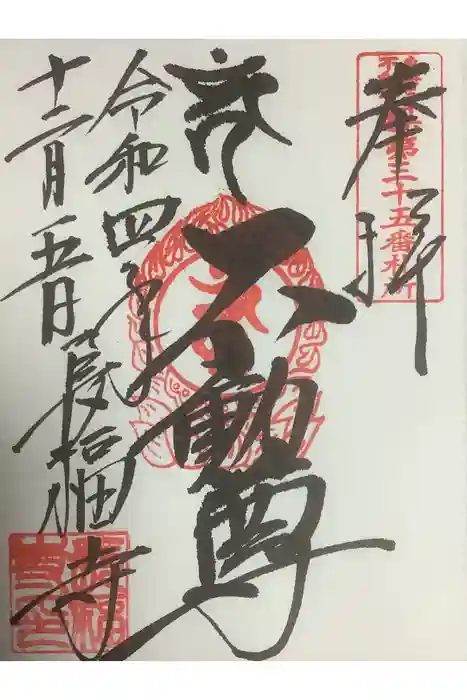 奉拝
第三十五番札所
不動尊
令和四年
十二月五日
長福寺